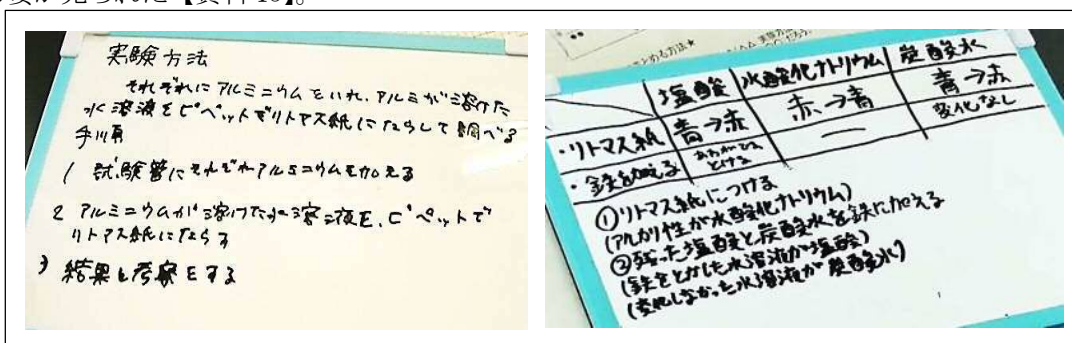 姿が見られた【資料
実験方法
それぞれにアルミニウムをいれ、アルミが溶けた
水溶液をピペットでリトマス紙にたらして調べる
手順
1 試験管にそれぞれアルミニウムを加える
2 アルミニウムが溶けた水溶液を、ピペットで
リトマス紙にたらす
3 結果と考察をする
塩酸 水酸化ナトリウム 炭酸水
・リトマス紙 青→赤 赤→青 青→赤
・鉄を加える あわがでる とける ー 変化なし
①リトマス紙につける
(アルカリ性が水酸化ナトリウム)
②残った塩酸と炭酸水を鉄に加える
(鉄をとかした水溶液が塩酸)
(変化しなかった水溶液が炭酸水)